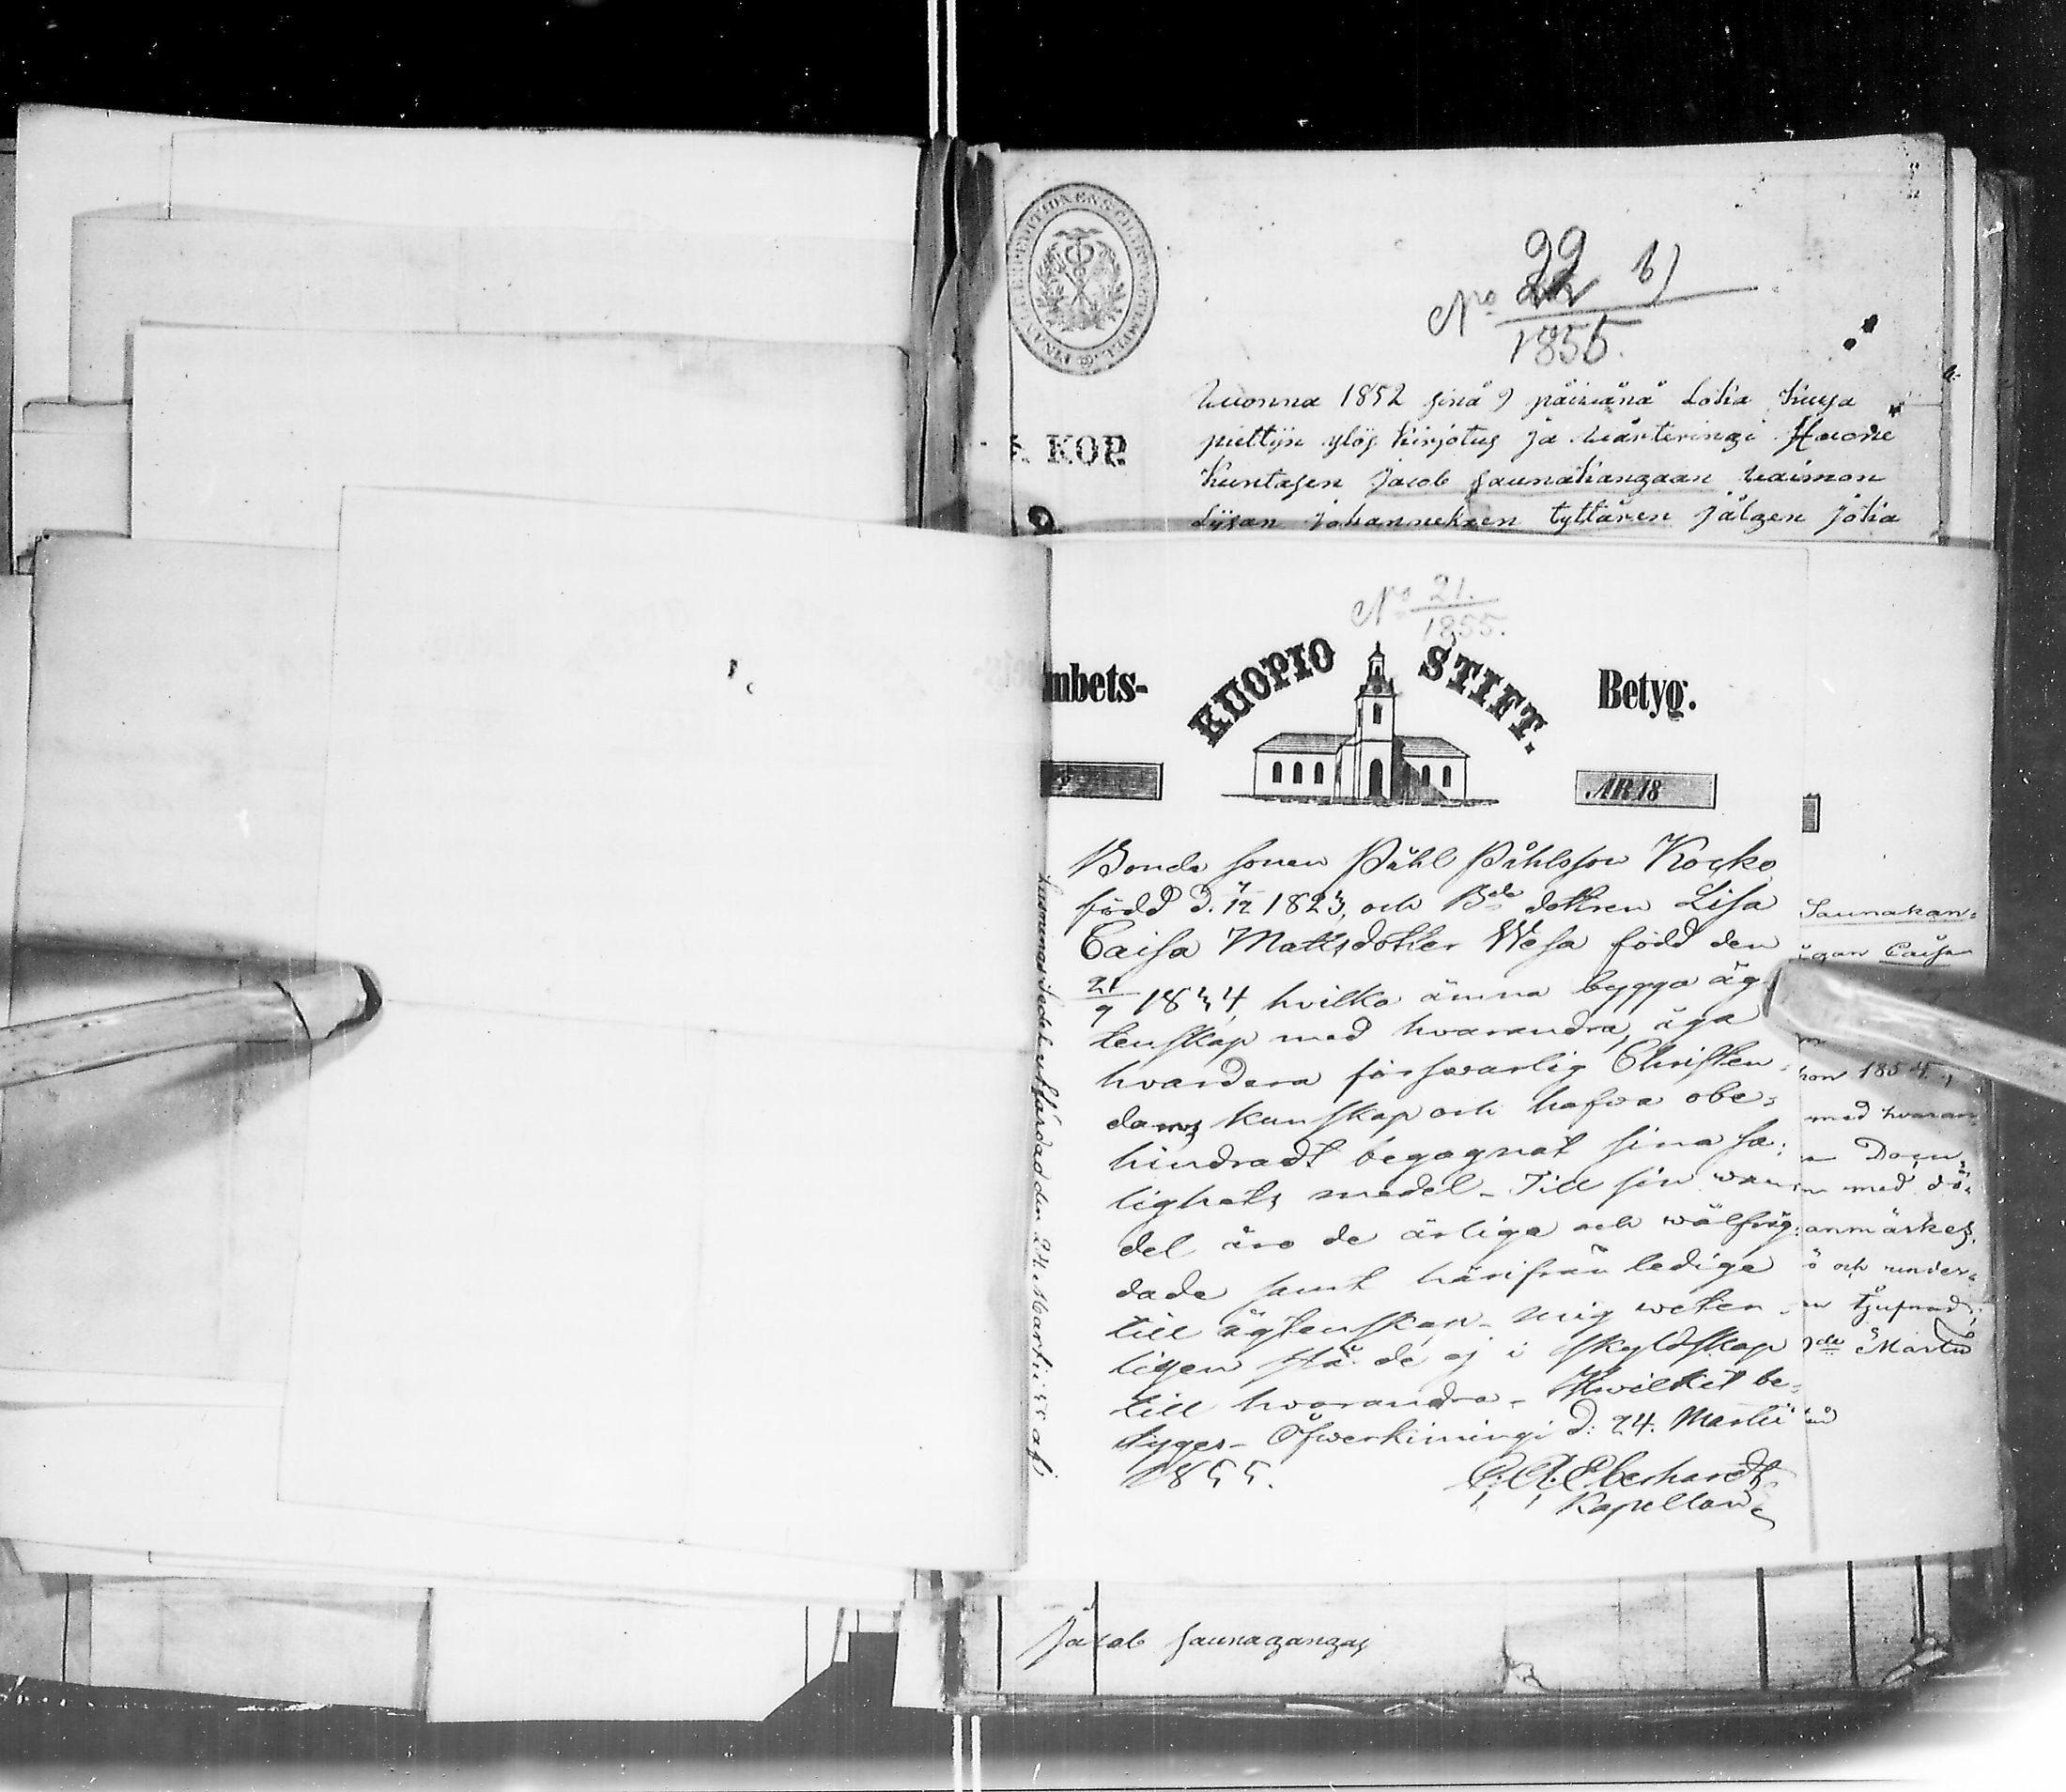 FINANCE EXPEDITIONENS CHARTÆ STEMPEL
22 b)
No 22
1855.
KOP.
Wuonna 1852 sinä 9 päiwänä Lokia kuusa
piettijn ylös kirjotus ja wärteringi Huone
kuntasen Jacob Saunakangaan waimon
Lijsan Johanneksen tyttären jälgen jokia
No 21.
1855.
mbets-
KUOPIO STIFT.
Betyg.
ÅR 18
Bonde sonen Påhl Påhlsson Kocko
född d. 1823, och Bde dottren Lisa
Caisa Mattsdotter Wesa född den
21/9 1834, hvilka ämna bygga äg
tenskap med hvarandra, äga
hvardera försvarlig Christen-
doms kunskap och hafva obe-
hindradt begagnat sina sa-
lighets medel - Till sin wan-
del äro de ärliga och wälfräg-
dade samt härifrån lediga
till ägtenskap - mig weter-
ligen stå de ej i skyldskap
till hvarandra - Hwilket be-
tyges - Öfwerkiimingi d: 24. Martii
1855.
C. A. Eberhardt
Kapellan
utfärdad den 24 Martii 55 af
Saunakan-
Caisa
1854,
med hvaran-
med dö-
anmärkes,
ö och under-
Martii
Jacob saunagangas